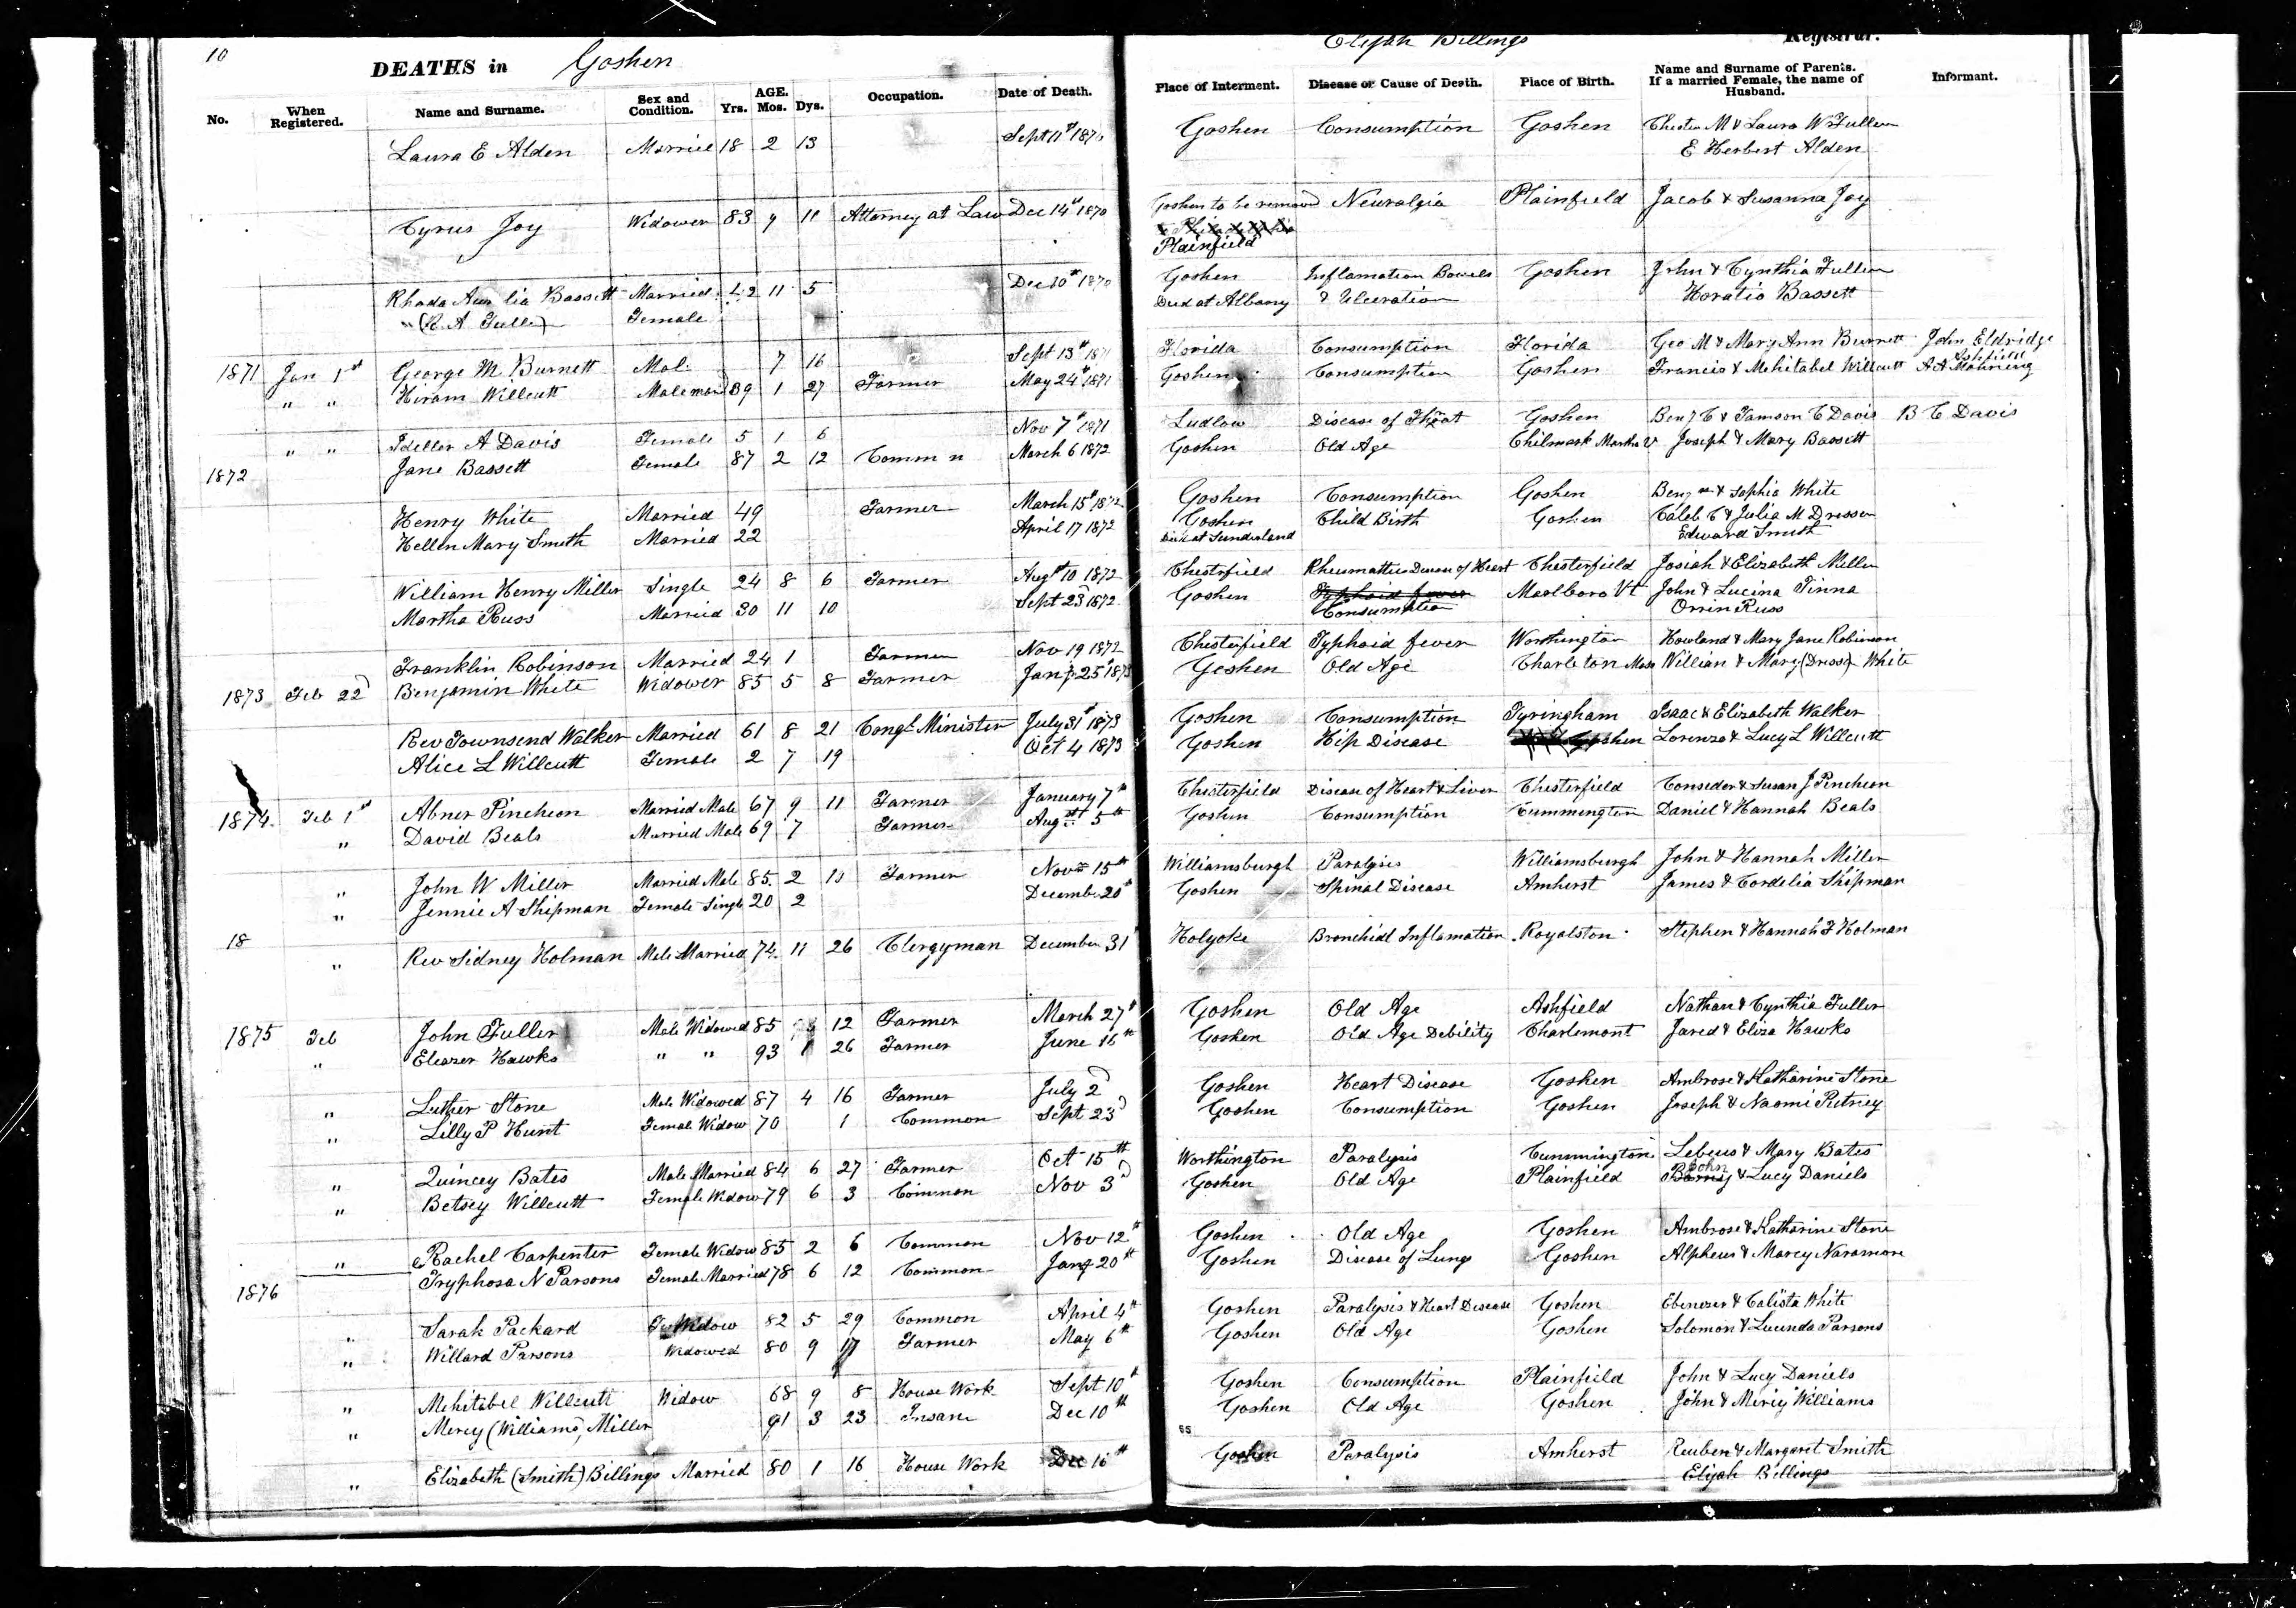 10
DEATHS in Goshen
Elijah Billings Registrar.
No. When Registered. Name and Surname. Sex and Condition. AGE. Yrs. Mos. Dys. Occupation. Date of Death. Place of Interment. Disease or Cause of Death. Place of Birth. Name and Surname of Parents. If a married Female, the name of Husband. Informant.
Laura E Alden Married 18 2 13 Sept 11th 1870 Goshen Consumption Goshen Chester M & Laura W Fuller
E Herbert Alden
Cyrus Joy Widower 83 9 11 Attorney at Law Dec 14th 1870 Goshen to be removed Neuralgia Plainfield Jacob & Susanna Joy
Plainfield
Rhoda Aurelia Bassett Married 42 11 5 Dec 10th 1870 Goshen Inflamation Bowels Goshen John & Cynthia Fuller
" (R. A Fuller) Female Died at Albany & Ulceration Horatio Bassett
1871 Jan 1st George M. Burnett Male 7 16 Sept 13th 1871 Florida Consumption Florida Geo M & Mary Ann Burnett John Eldridge
Ashfield
" " Hiram Willcutt Male mar 39 1 27 Farmer May 24th 1871 Goshen Consumption Goshen Francis & Mehitabel Willcutt
" " Idella A Davis Female 5 1 6 Nov 7th 1871 Ludlow Disease of Throat Goshen Benj C & Tamson C Davis B C Davis
1872 Jane Bassett Female 87 2 12 Comm n March 6 1872 Goshen Old Age Chilmark Martha V Joseph & Mary Bassett
Henry White Married 49 Farmer March 15th 1872 Goshen Consumption Goshen Benj & Sophia White
Hellen Mary Smith Married 22 April 17 1872 Goshen Child Birth Goshen Caleb C & Julia M Dresser
Died at Sunderland Edward Smith
William Henry Miller Single 24 8 6 Farmer Augst 10 1872 Chesterfield Rheumattic Disease of Heart Chesterfield Josiah & Elizabeth Miller
Martha Russ Married 30 11 10 Sept 23d 1872 Goshen Typhoid fever Marlboro Vt John & Lucina Tinna
Consumption Orrin Russ
Franklin Robinson Married 24 1 Farmer Nov 19 1872 Chesterfield Typhoid fever Worthington Howland & Mary Jane Robinson
1873 Feb 22d Benjamin White Widower 85 5 8 Farmer Jany 25th 1873 Goshen Old Age Charleton Mass William & Mary (Dresser) White
Rev Townsend Walker Married 61 8 21 Congl Minister July 31st 1873 Goshen Consumption Tyringham Isaac & Elizabeth Walker
Alice L Willcutt Female 2 7 19 Oct 4 1873 Goshen Hip Disease Goshen Lorenzo & Lucy L Willcutt
1874 Feb 1st Abner Pincheon Married Male 67 9 11 Farmer January 7th Chesterfield Disease of Heart & Liver Chesterfield Conseder & Susan J Pincheon
" David Beals Married Male 69 7 Farmer Augst 5th Goshen Consumption Cummington Daniel & Hannah Beals
" John W Miller Married Male 85 2 Farmer Nov 15th Williamsburgh Paralysis Williamsburgh John & Hannah Miller
" Jennie A Shipman Female Single 20 2 December 20th Goshen Spinal Disease Amherst James & Cordelia Shipman
18
" Rev Sidney Holman Male Married 74 11 26 Clergyman December 31 Holyoke Bronchial Inflamation Royalston Stephen & Hannah F Holman
1875 Feb John Fuller Male Widowed 85 12 Farmer March 27th Goshen Old Age Ashfield Nathan & Cynthia Fuller
" Eleazer Hawks " " 93 1 26 Farmer June 16th Goshen Old Age Debility Charlemont Jared & Eliza Hawks
" Luther Stone Male Widowed 87 4 16 Farmer July 2d Goshen Heart Disease Goshen Ambrose & Katharine Stone
" Lilly P Hunt Female Widow 70 1 Common Sept 23d Goshen Consumption Goshen Joseph & Naomi Putney
" Quincy Bates Male Married 84 6 27 Farmer Oct 15th Worthington Paralysis Cummington Lebeus & Mary Bates
" Betsey Willcutt Female Widow 79 6 3 Common Nov 3d Goshen Old Age Plainfield John & Lucy Daniels
" Rachel Carpenter Female Widow 85 2 6 Common Nov 12th Goshen Old Age Goshen Ambrose & Katharine Stone
1876 Tryphosa N Parsons Female Married 78 6 12 Common Jany 20th Goshen Disease of Lungs Goshen Alpheus & Marcy Naramore
" Sarah Packard Widow 82 5 29 Common April 4th Goshen Paralysis & Heart Disease Goshen Ebenezer & Calista White
" Willard Parsons Widowed 80 9 17 Farmer May 6th Goshen Old Age Goshen Solomon & Lucinda Parsons
" Mehitabel Willcutt Widow 68 9 8 House Work Sept 10th Goshen Consumption Plainfield John & Lucy Daniels
" Mercy (Williams) Miller 91 3 23 Insane Dec 10th Goshen Old Age Goshen John & Mercy Williams
" Elizabeth (Smith) Billings Married 80 1 16 House Work Dec 16th Goshen Paralysis Amherst Reuben & Margaret Smith
Elijah Billings